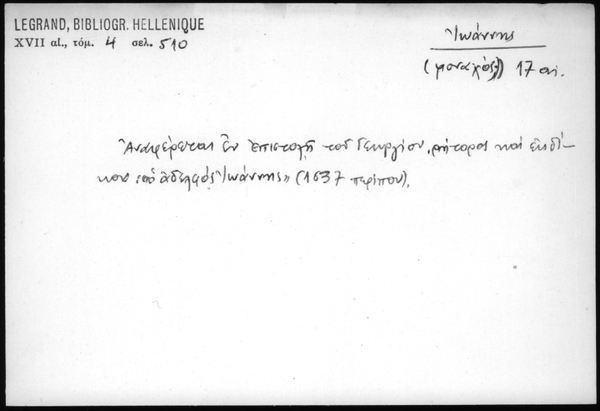 LEGRAND, BIBLIOGR. HELLENIQUE
XVII αἰ., τόμ. 4 σελ. 510
Ἰωάννης
(μοναχός) 17 αι.
Ἀναφέρεται ἐν ἐπιστολῇ τοῦ Γεωργίου, ρήτορος καὶ ἐκδί-
κου «ὁ ἀδελφὸς Ἰωάννης» (1637 περίπου).